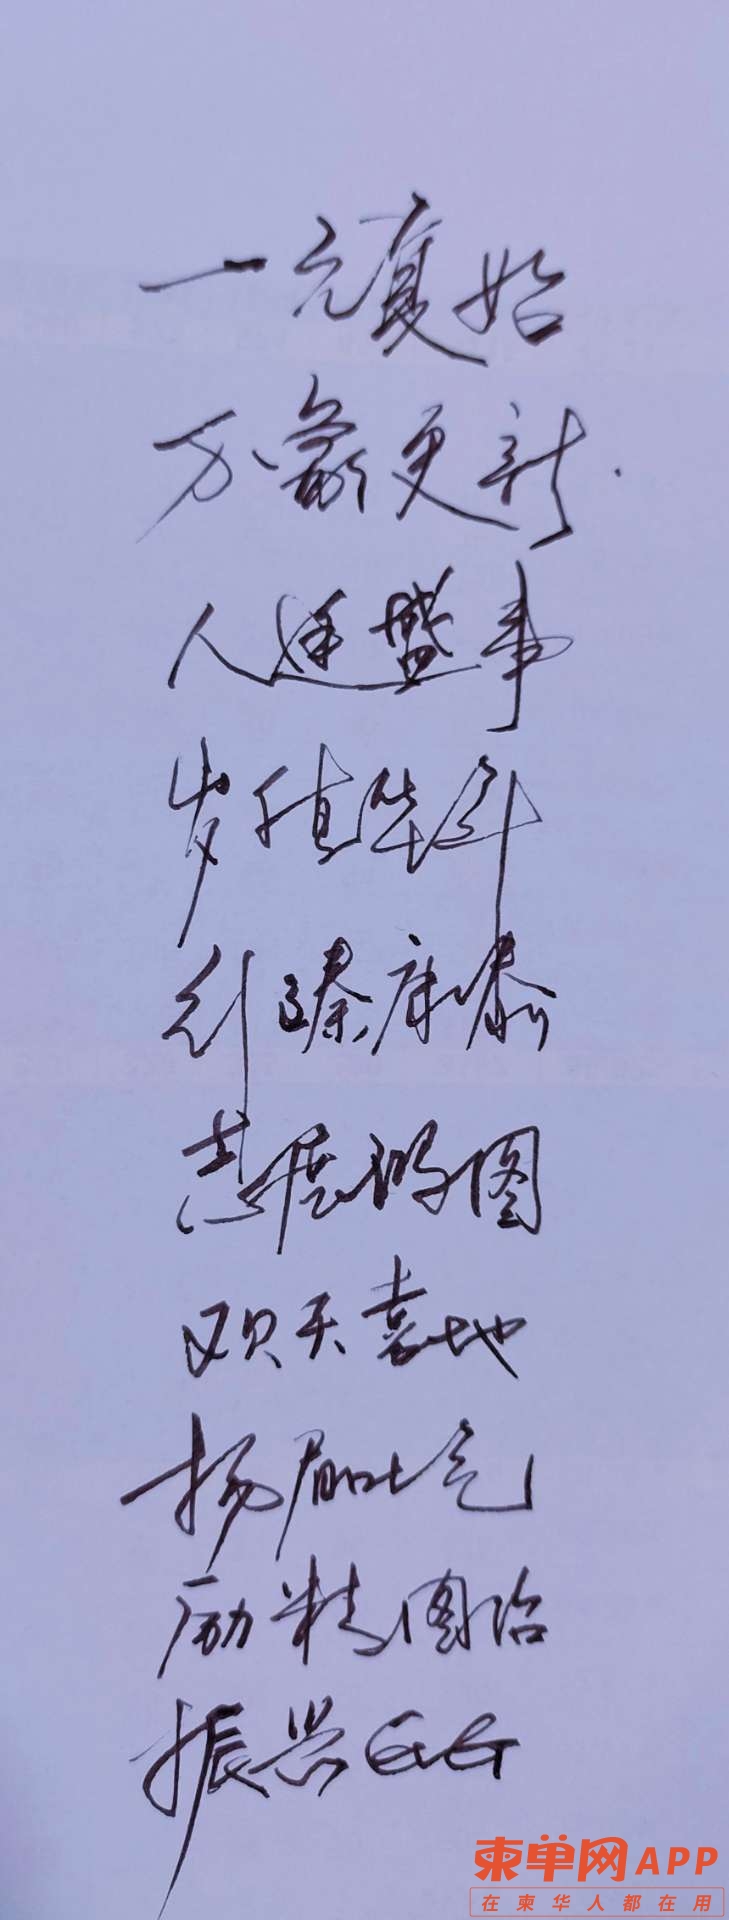 一元复始
万象更新
人逢盛事
岁值牛年
到臻康泰
志展鸿图
欢天喜地
扬眉吐气
励精图治
振兴GG
柬单网APP
在柬华人都在用